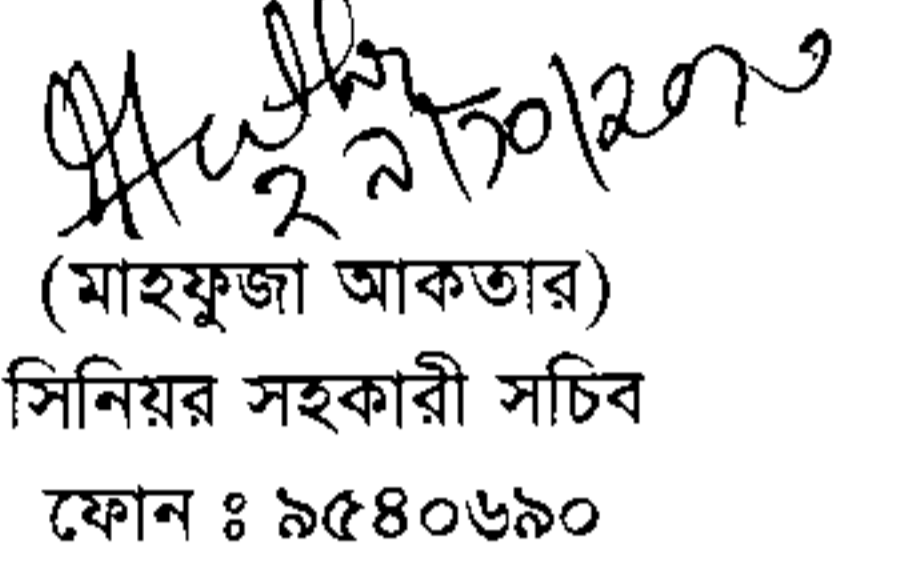 ২৯/১০/২০১৩
(মাহফুজা আকতার)
সিনিয়র সহকারী সচিব
ফোন ঃ ৯৫৪০৬৯০